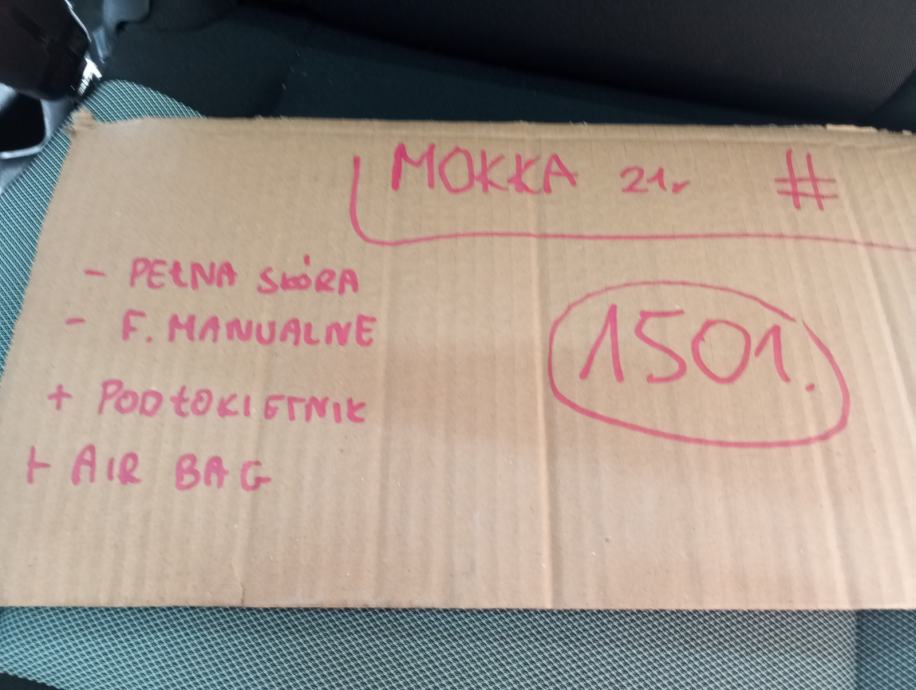 MOKKA 21r #
- PEŁNA SKÓRA
- F. MANUALNE
1501.
+ PODŁOKIETNIK
+ AIR BAG